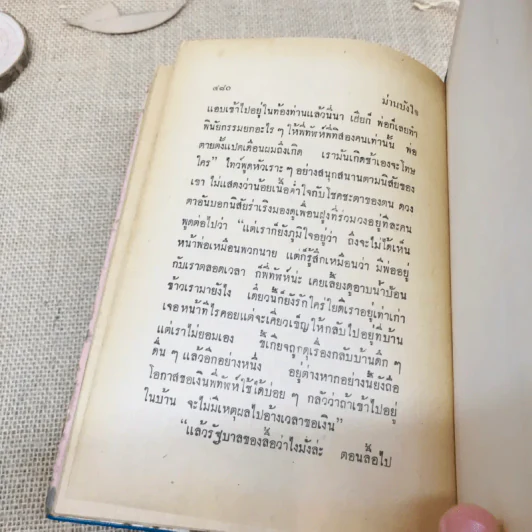 ๔๘๐
ม่านบังใจ
แอบเข้าไปอยู่ในท้องท่านแล้วนี่นา เฮียก็ พ่อก็เลยทำ
พินัยกรรมยกอะไร ๆ ให้พี่ทัพพ์พี่ทิสองคนเท่านั้น พ่อ
ตายตั้งแปดเดือนผมถึงเกิด เรามันเกิดช้าเองจะโทษ
ใคร” ไทว์พูดหัวเราะ ๆ อย่างสนุกสนานตามนิสัยของ
เขา ไม่แสดงว่าน้อยเนื้อต่ำใจกับโชคชะตาของตน ดวง
ตาอันบอกนิสัยร่าเริงมองดูเพื่อนฝูงที่ร่วมวงอยู่ทีละคน
พูดต่อไปว่า “แต่เราก็ยังภูมิใจอยู่ว่า ถึงจะไม่ได้เห็น
หน้าพ่อเหมือนพวกนาย แต่ก็รู้สึกเหมือนว่า มีพ่ออยู่
กับเราตลอดเวลา ก็พี่ทัพพ์น่ะ เคยเลี้ยงดูอาบน้ำป้อน
ข้าวเรามายังไง เดี๋ยวนี้ก็ยังรักใคร่ใยดีเราอยู่เท่าเก่า
เจอหน้าทีไรคอยแต่จะเคี่ยวเข็ญให้กลับไปอยู่ที่บ้าน
แต่เราไม่ยอมเอง ขี้เกียจถูกดุเรื่องกลับบ้านดึก ๆ
ดื่น ๆ แล้วอีกอย่างหนึ่ง อยู่ต่างหากอย่างนี้ยังถือ
โอกาสขอเงินพี่ทัพพ์ใช้ได้บ่อย ๆ กลัวว่าถ้าเข้าไปอยู่
ในบ้าน จะไม่มีเหตุผลไปอ้างเวลาขอเงิน”
“แล้วรัฐบาลของลื้อว่าไงมั่งล่ะ ตอนลื้อไป